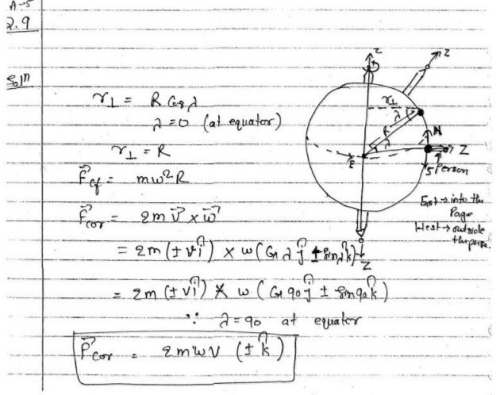 A-5
2.9
Soln
r⊥ = R Cosλ
λ=0 (at equator)
r⊥ = R
F⃗cf = mω²R
F⃗cor = 2m v⃗ × ω⃗
= 2m (± v î) × ω (Cosλ ĵ ± sinλ k̂)
= 2m (± v î) × ω (Cos90 ĵ ± sin90 k̂)
∵ λ=90 at equator
F⃗cor = 2mωv (± k̂)
z
Z
r⊥
λ
R
λ
N
Z
E
S
Person
East → into the
Page
West → outside
the page
Z